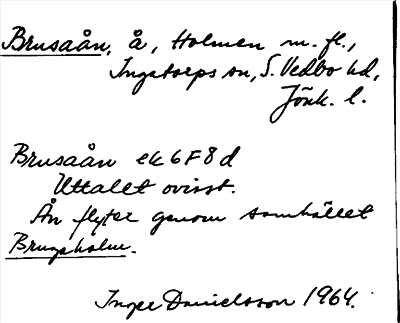 Brusaån, å, Holmen m. fl.,
Ingatorps sn, S. Vedbo hd,
Jönk. l.
Brusaån ek 6F8d
Uttalet ovisst.
Ån flyter genom samhället
Brusaholm.
Inger Danielsson 1964.